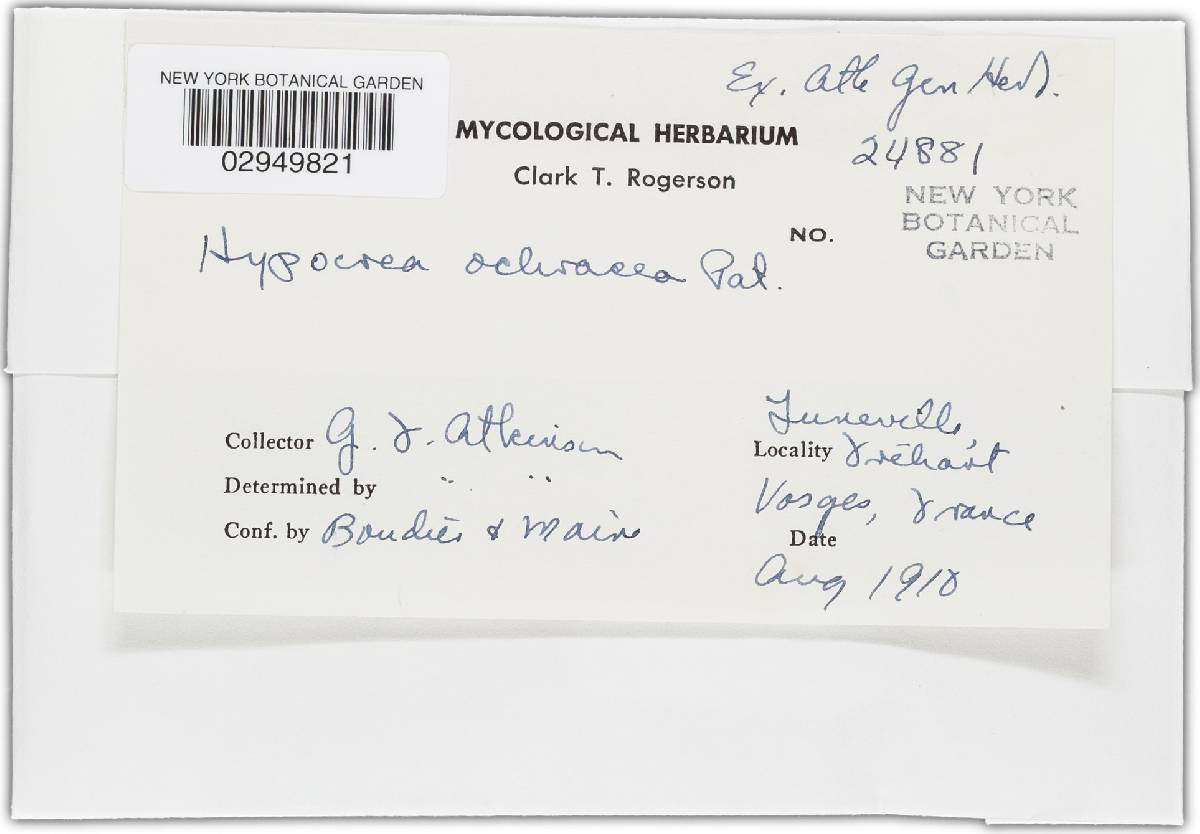 NEW YORK BOTANICAL GARDEN
02949821
Ex. Atk Gen Herb.
24881
MYCOLOGICAL HERBARIUM
Clark T. Rogerson
NO.
NEW YORK
BOTANICAL
GARDEN
Hypocrea ochracea Pat.
Collector G. F. Atkinson
Determined by " "
Conf. by Boudier &
Luneville,
Locality
Vosges, France
Date
Aug 1910